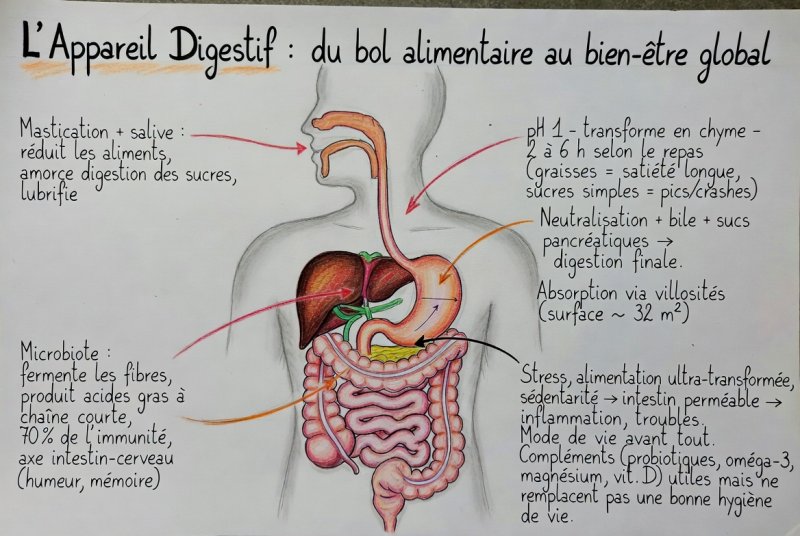 L'Appareil Digestif : du bol alimentaire au bien-être global
Mastication + salive :
réduit les aliments,
amorce digestion des sucres,
lubrifie
pH 1 - transforme en chyme -
2 à 6 h selon le repas
(graisses = satiété longue,
sucres simples = pics/crashes)
Neutralisation + bile + sucs
pancréatiques →
digestion finale.
Absorption via villosités
(surface ~ 32 m²)
Microbiote :
fermente les fibres,
produit acides gras à
chaîne courte,
70% de l'immunité,
axe intestin-cerveau
(humeur, mémoire)
Stress, alimentation ultra-transformée,
sédentarité → intestin perméable →
inflammation, troubles.
Mode de vie avant tout.
Compléments (probiotiques, oméga-3,
magnésium, vit. D) utiles mais ne
remplacent pas une bonne hygiène
de vie.